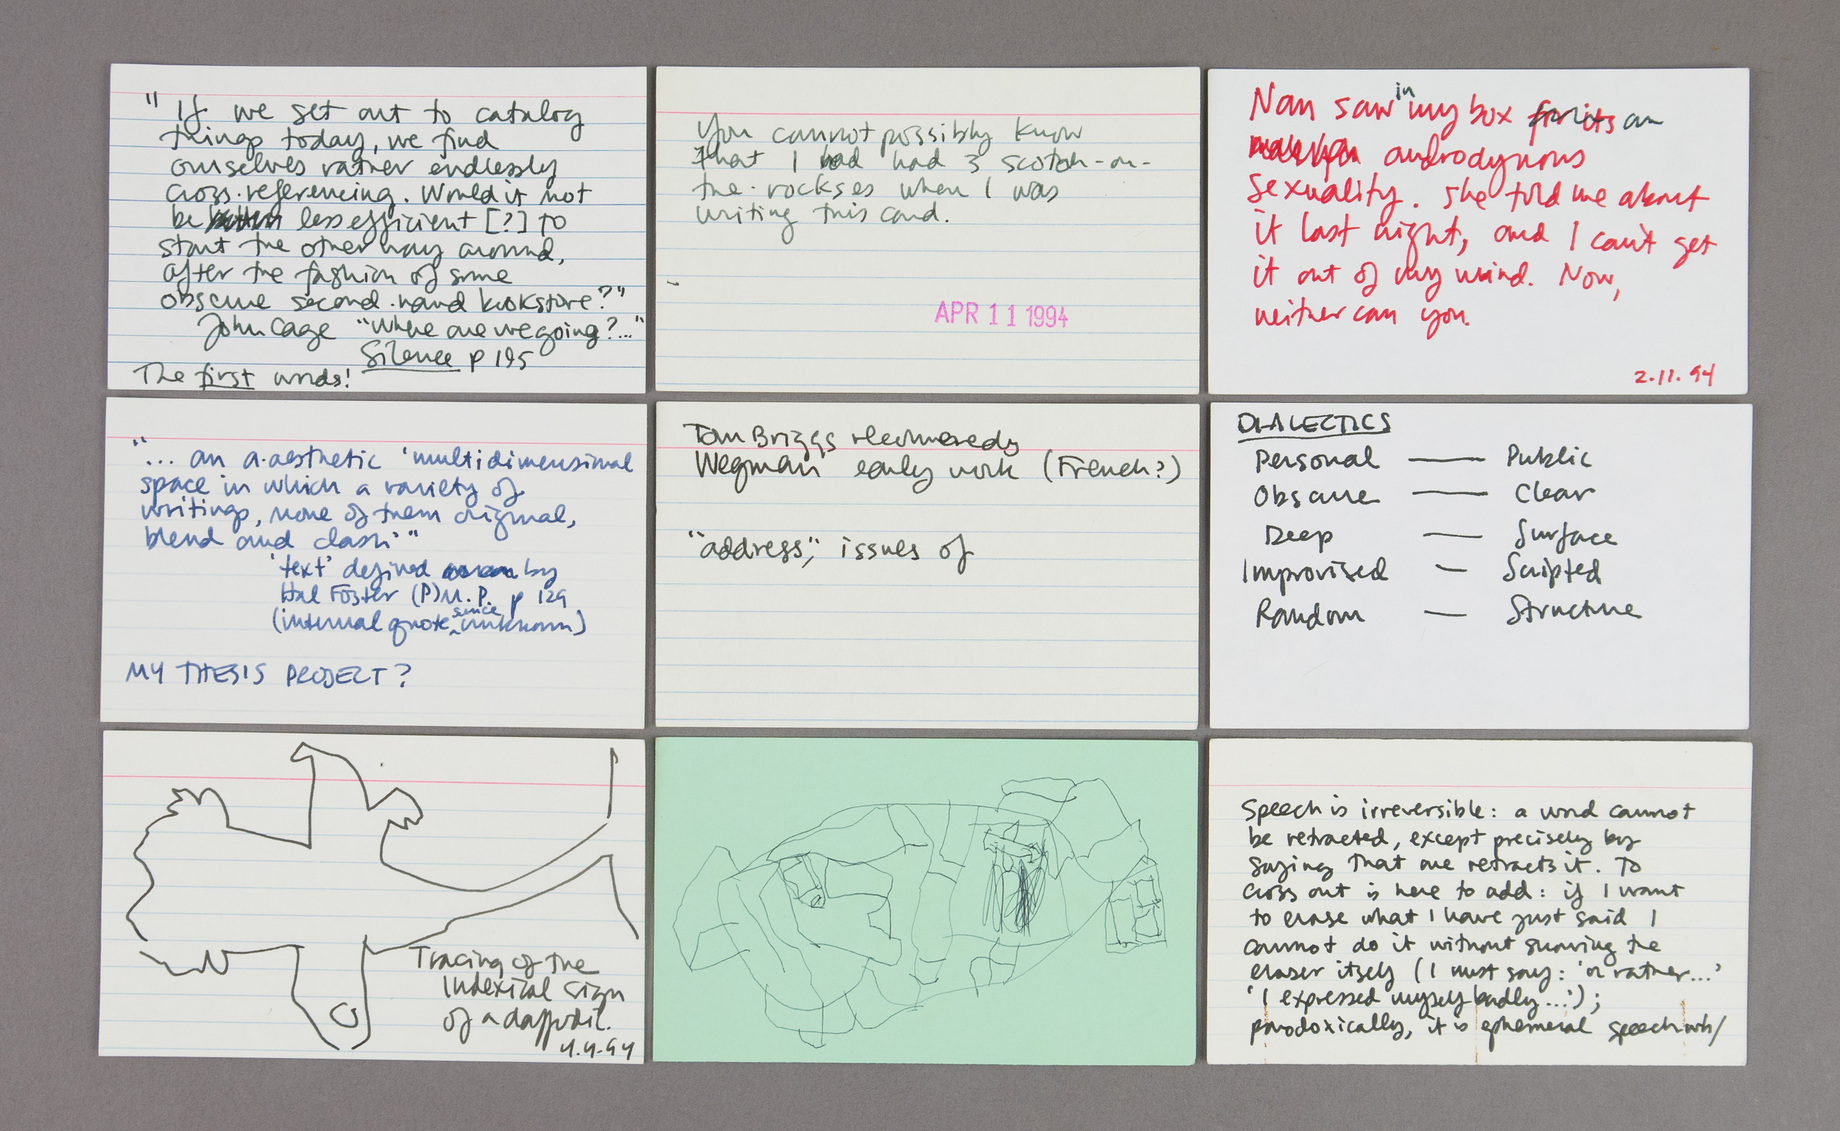 "If we set out to catalog
things today, we find
ourselves rather endlessly
cross-referencing. Would it not
be less efficient [?] to
start the other way around,
after the fashion of some
obscure second-hand bookstore?"
John Cage "Where are we going?..."
Silence p 195
The first words!
You cannot possibly know
that I had had 3 scotch-on-
the-rockses when I was
writing this card.
APR 11 1994
Nan saw in my box for its an
androdynous
sexuality. She told me about
it last night, and I can't get
it out of my mind. Now,
neither can you.
2.11.94
"... an a-aesthetic 'multidimensional
space in which a variety of
writings, none of them original,
blend and clash'"
'text' defined by
Hal Foster (P)M.P. p 129
(internal quote since unknown)
MY THESIS PROJECT?
Tom Briggs recommends
Wegman early work (French?)
"address", issues of
DIALECTICS
Personal — Public
Obscure — Clear
Deep — Surface
Improvised — Scripted
Random — Structure
Tracing of the
Indexical sign
of a daffodil.
4.4.94
Speech is irreversible: a word cannot
be retracted, except precisely by
saying that one retracts it. To
cross out is here to add: if I want
to erase what I have just said I
cannot do it without showing the
eraser itself (I must say: 'or rather...'
'I expressed myself badly...');
paradoxically, it is ephemeral speech wh/